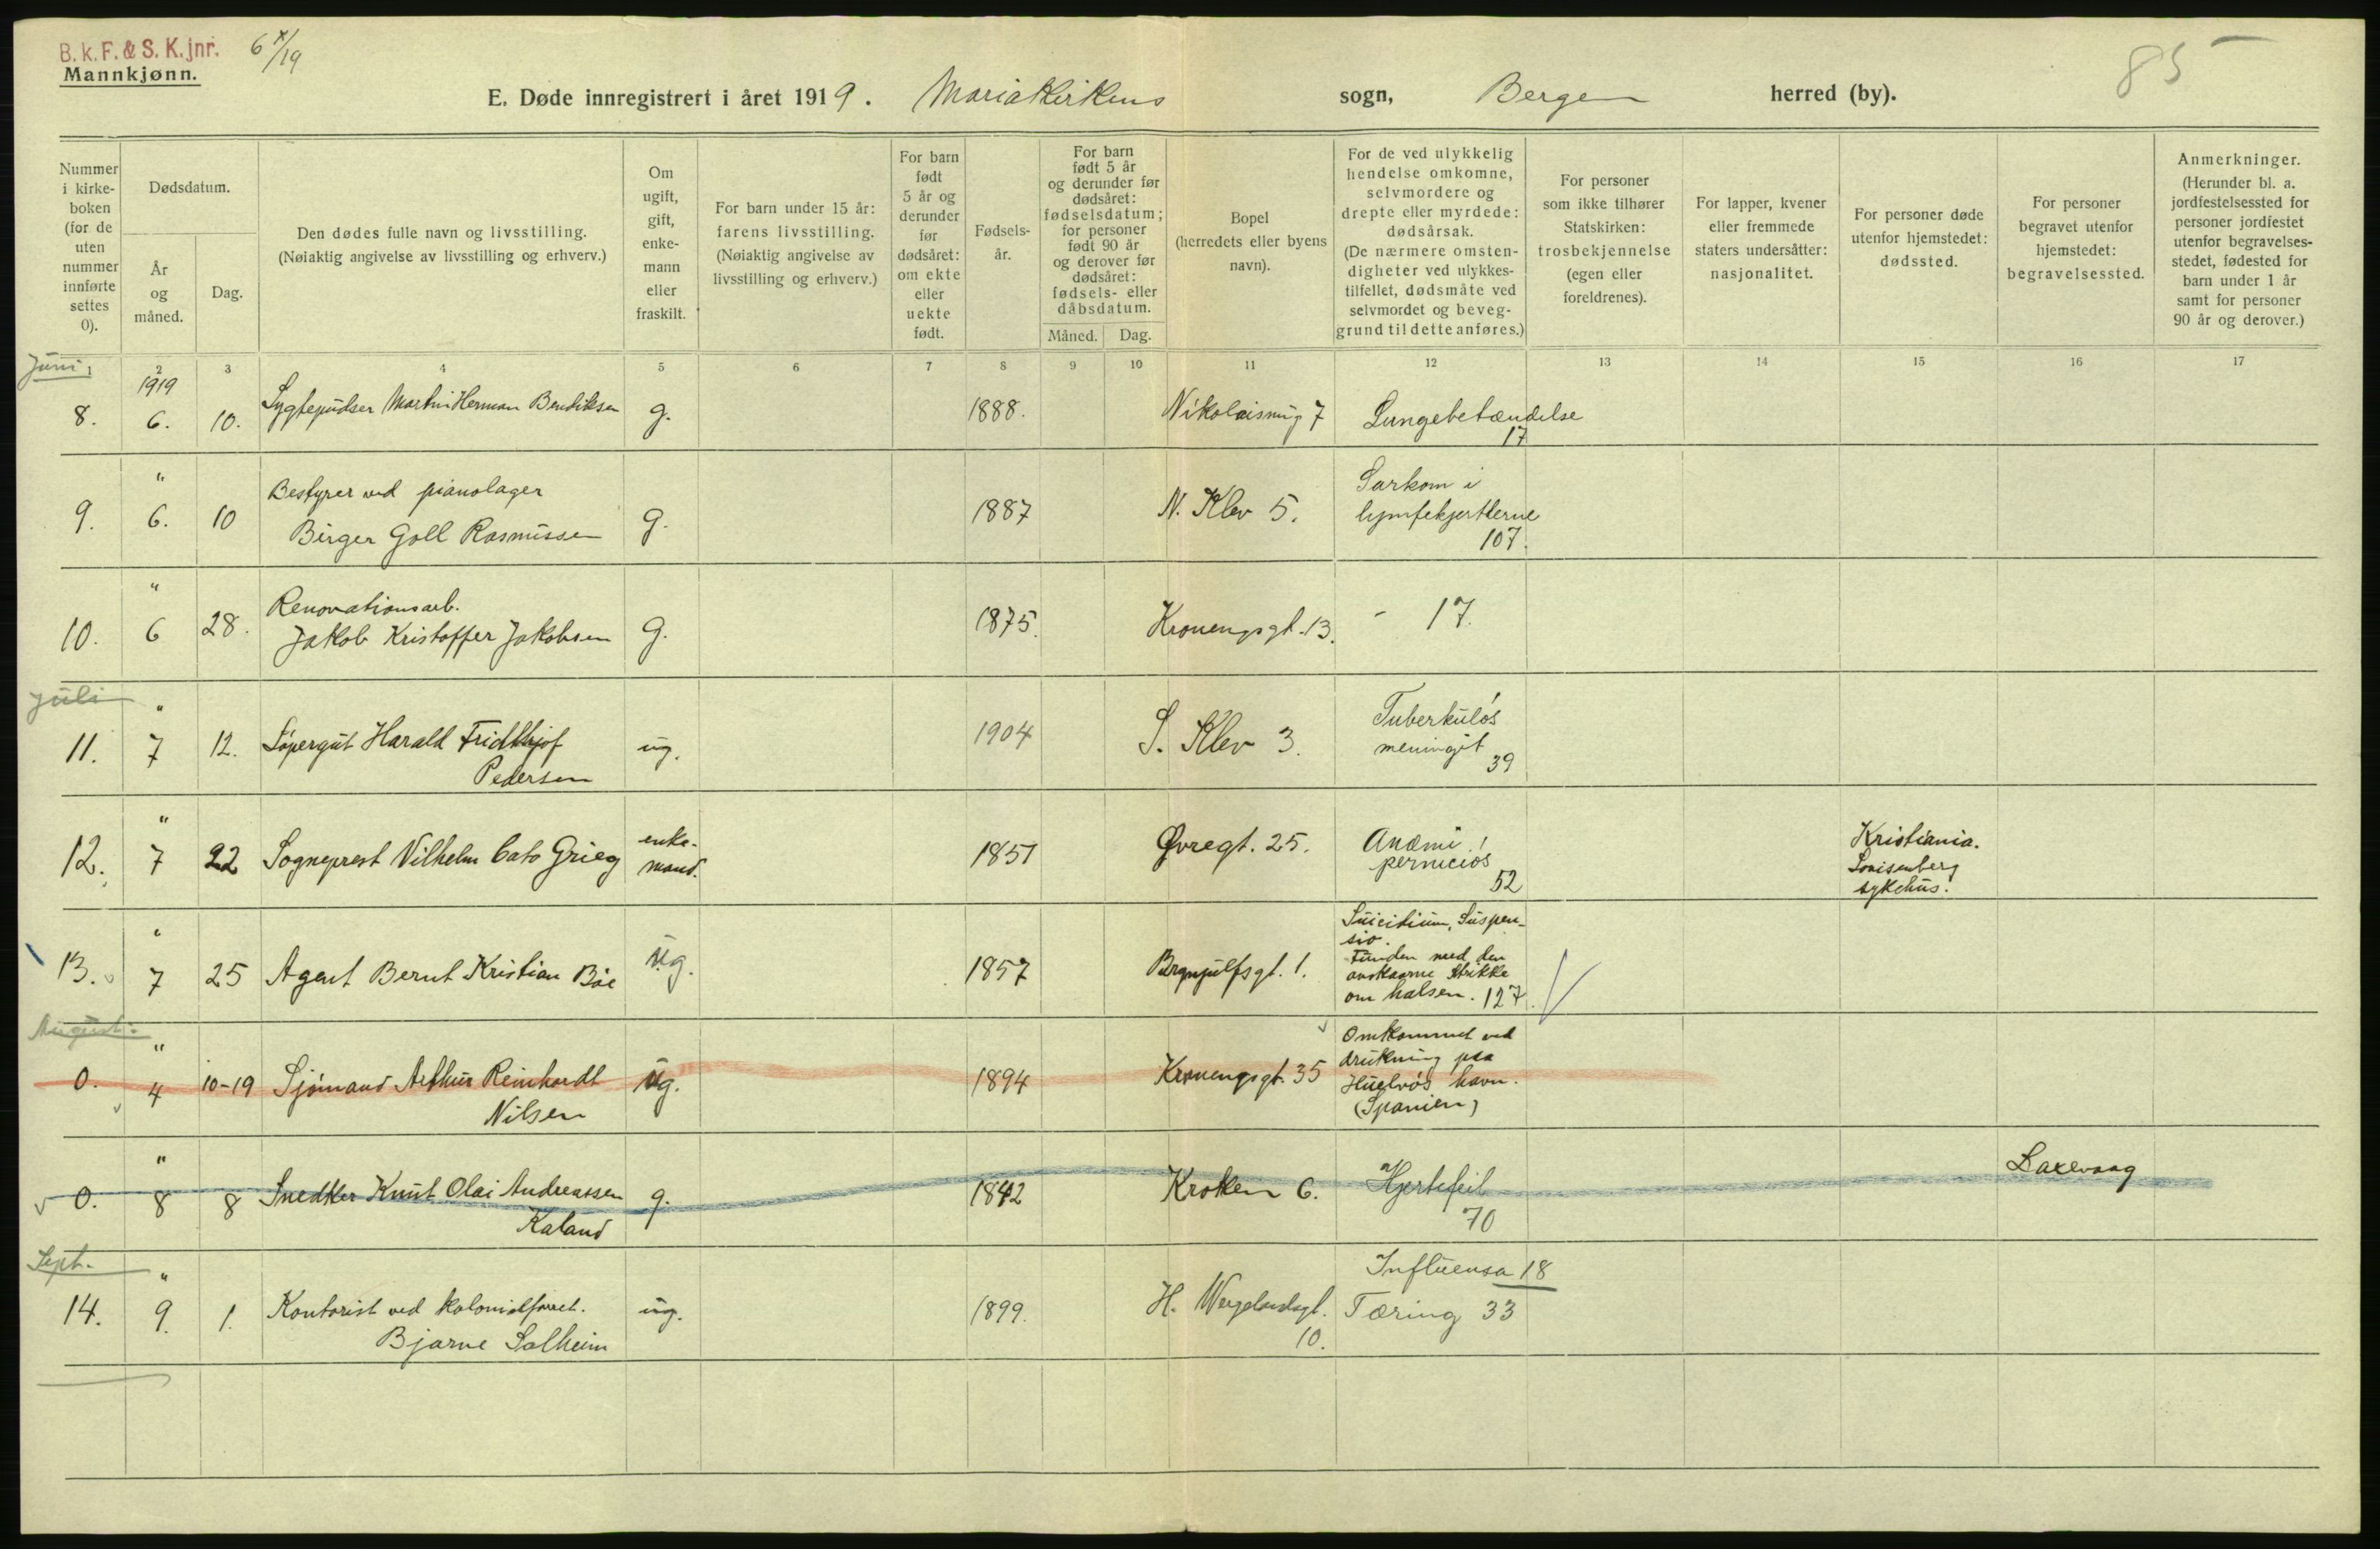 B. k. F. & S. K. jnr. 6 X/19
Mannkjønn.
85
E. Døde innregistrert i året 1919. Mariakirkens sogn, Bergen herred (by).
Nummer i kirke- boken (for de uten nummer innførte settes 0).
Dødsdatum.
År og måned.
Dag.
Den dødes fulle navn og livsstilling.
(Nøiaktig angivelse av livsstilling og erhverv.)
Om ugift, gift, enke- mann eller fraskilt.
For barn under 15 år: farens livsstilling. (Nøiaktig angivelse av livsstilling og erhverv.)
For barn født 5 år og derunder før dødsåret: om ekte eller uekte født.
Fødsels- år.
For barn født 5 år og derunder før dødsåret: fødselsdatum; for personer født 90 år og derover før dødsåret: fødsels- eller dåbsdatum.
Måned. Dag.
Bopel (herredets eller byens navn).
For de ved ulykkelig hendelse omkomne, selvmordere og drepte eller myrdede: dødsårsak. (De nærmere omsten- digheter ved ulykkes- tilfellet, dødsmåte ved selvmordet og beveg- grund til dette anføres.)
For personer som ikke tilhører Statskirken: trosbekjennelse (egen eller foreldrenes).
For lapper, kvener eller fremmede staters undersåtter: nasjonalitet.
For personer døde utenfor hjemstedet: dødssted.
For personer begravet utenfor hjemstedet: begravelsessted.
Anmerkninger. (Herunder bl. a. jordfestelsessted for personer jordfestet utenfor begravelses- stedet, fødested for barn under 1 år samt for personer 90 år og derover.)
1 2 3 4 5 6 7 8 9 10 11 12 13 14 15 16 17
Juni
1919
8. 6. 10. Lygtepudser Martin Herman Bendiksen g. 1888. Nikolaismug 7 Lungebetændelse
17
9. " 6. 10 Bestyrer ved pianolager
Birger Goll Rasmussen g. 1887 N. Klev 5. Sarkom i
lymfekjertlerne
107.
10. " 6 28. Renovationsarb.
Jakob Kristoffer Jakobsen g. 1875. Kronengsgt. 13. - 17.
Juli
11. " 7 12. Løpergut Harald Fridthjof
Pedersen ug. 1904 S. Klev 3. Tuberkuløs
meningit
39
12. " 7 22 Sogneprest Vilhelm Cato Grieg enke-
mand. 1851 Øvregt. 25. Anæmi
perniciøs
52 Kristiania.
Lovisenberg
sykehus.
13. " 7 25 Agent Bernt Kristian Bøe ug. 1857 Brynjulfsgt. 1. Suicidium, Suspen-
sio.
Funden med den
avskaarne strikke
om halsen. 127.
August.
0. " 4 10-19 Sjømand Arthur Reinhardt
Nilsen ug. 1894 Kronengsgt. 35 Omkommet ved
drukning paa
Huelvás havn.
(Spanien)
0. " 8 8 Snedker Knut Olai Andreassen
Kaland g. 1842 Kroken 6. Hjertefeil
70 Laxevaag
Sept.
14. " 9. 1. Kontorist ved kolonialforret.
Bjarne Solheim ug. 1899. H. Wergelandsgt.
10. Influensa 18
Tæring 33